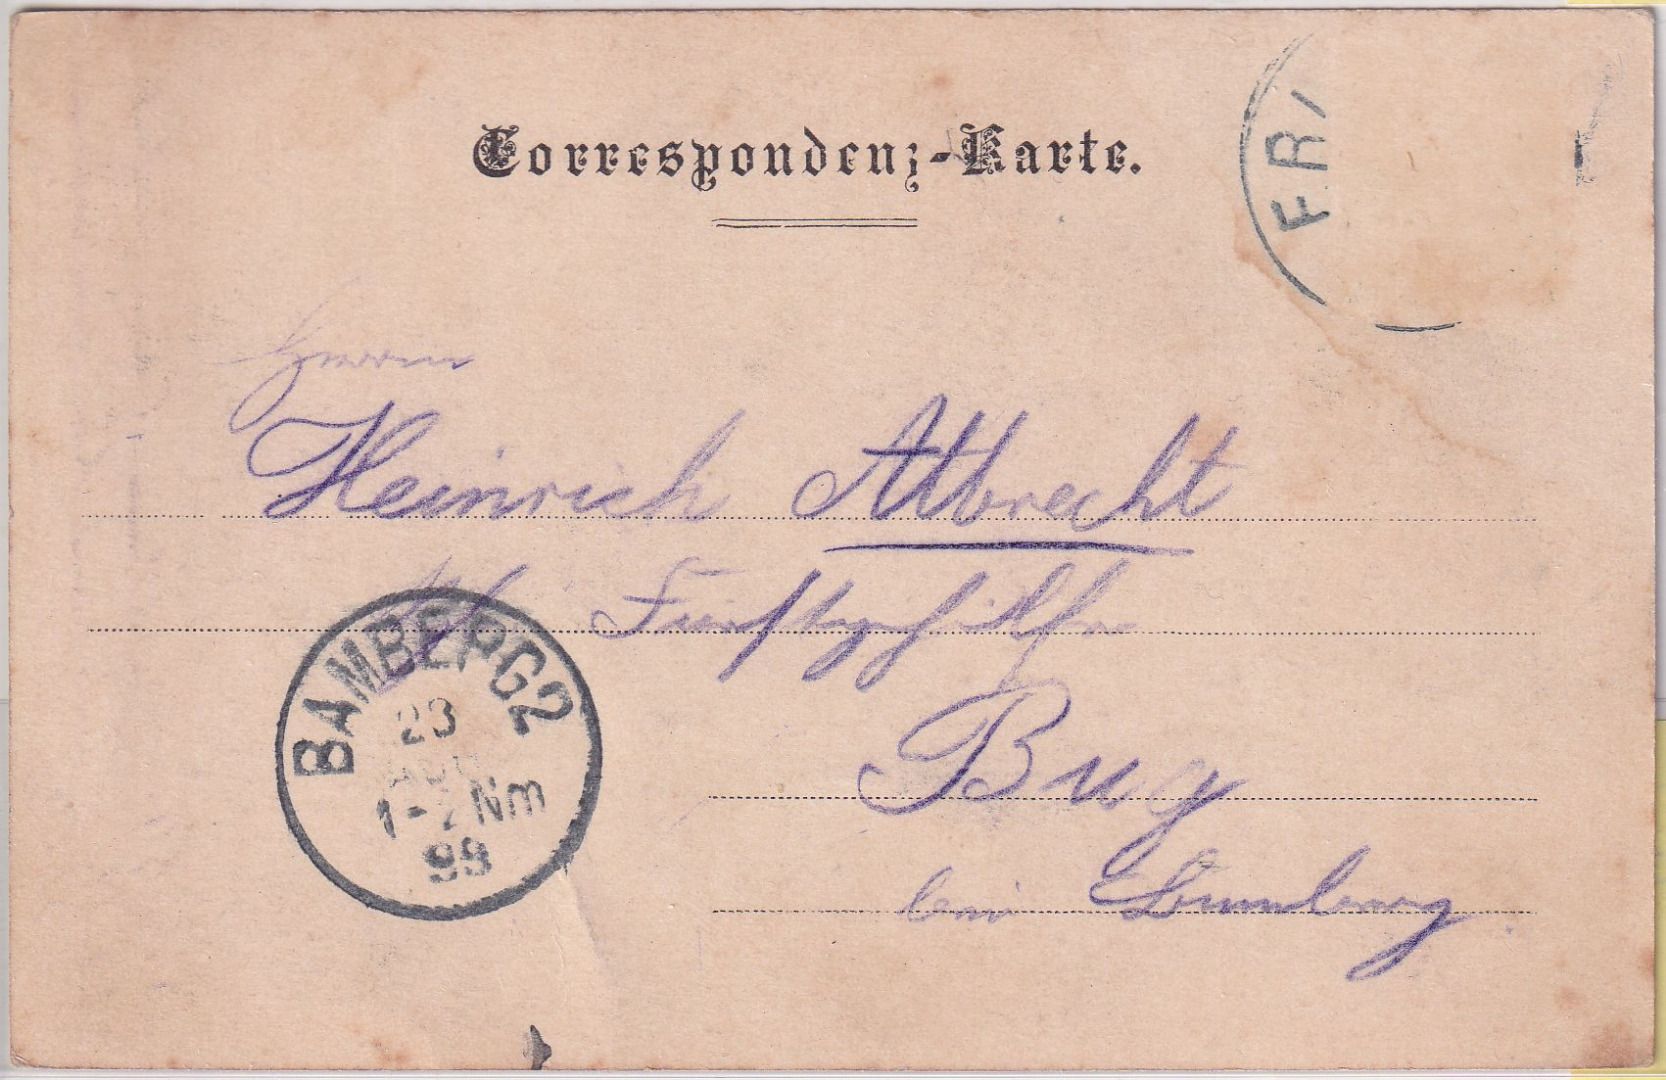 Correspondenz-Karte.
FRI
Herrn
Heinrich Albrecht
Bug
bei Bamberg
BAMBERG 2
23
AUG
1-2 Nm
99